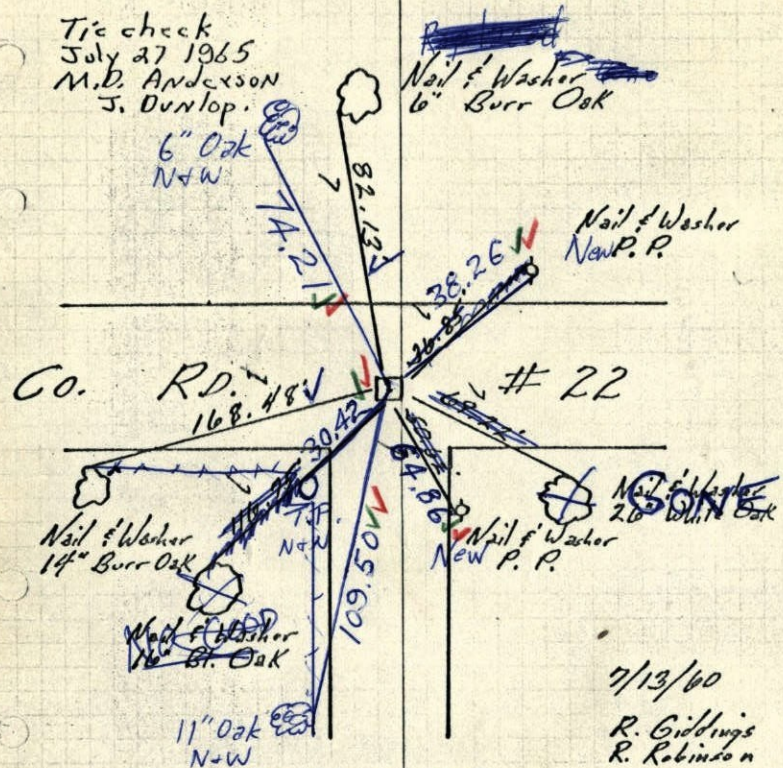 Tie check
July 27 1965
M.D. Anderson
J. Dunlop.
Nail & Washer
6" Burr Oak
6" Oak
N+W
82.13
74.21
Nail & Washer
New P. P.
38.26
36.85
Co. RD. # 22
168.48
30.42
64.86
109.50
Nail & Washer
14" Burr Oak
T.P.
N+N
Nail & Washer
New P. P.
GONE
Nail & Washer
26" White Oak
Nail & Washer
16" Bl. Oak
11" Oak
N+W
7/13/60
R. Giddings
R. Robinson